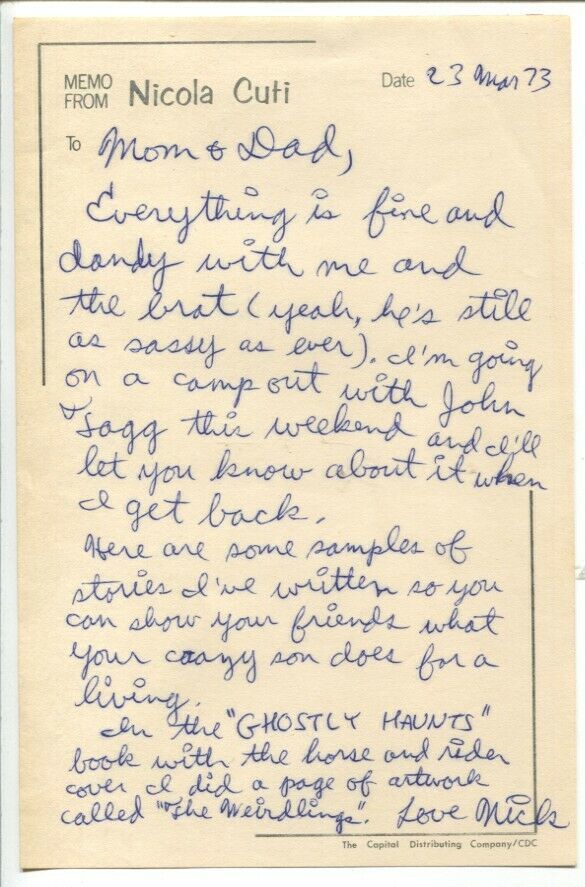 MEMO FROM Nicola Cuti Date 23 Mar 73
To Mom & Dad,
Everything is fine and
dandy with me and
the brat (yeah, he's still
as sassy as ever). I'm going
on a camp out with John
this weekend and I'll
let you know about it when
I get back.
Here are some samples of
stories I've written so you
can show your friends what
your crazy son does for a
living.
In the "GHOSTLY HAUNTS"
book with the horse and rider
cover I did a page of artwork
called "The Weirdlings". Love Nick
The Capital Distributing Company/CDC